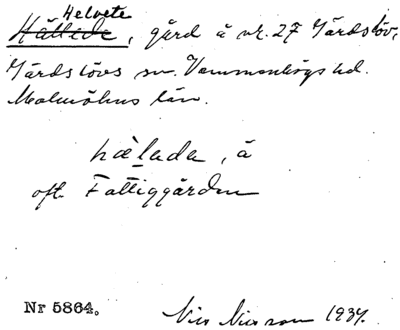 Helvete
Hällede, gård å nr. 27 Gärdslöv,
Gärdslövs sn. Vemmenhögs hd.
Malmöhus län.
hælada, å
oft. Fattiggården
Nr 5864. Nils Nilsson 1937.